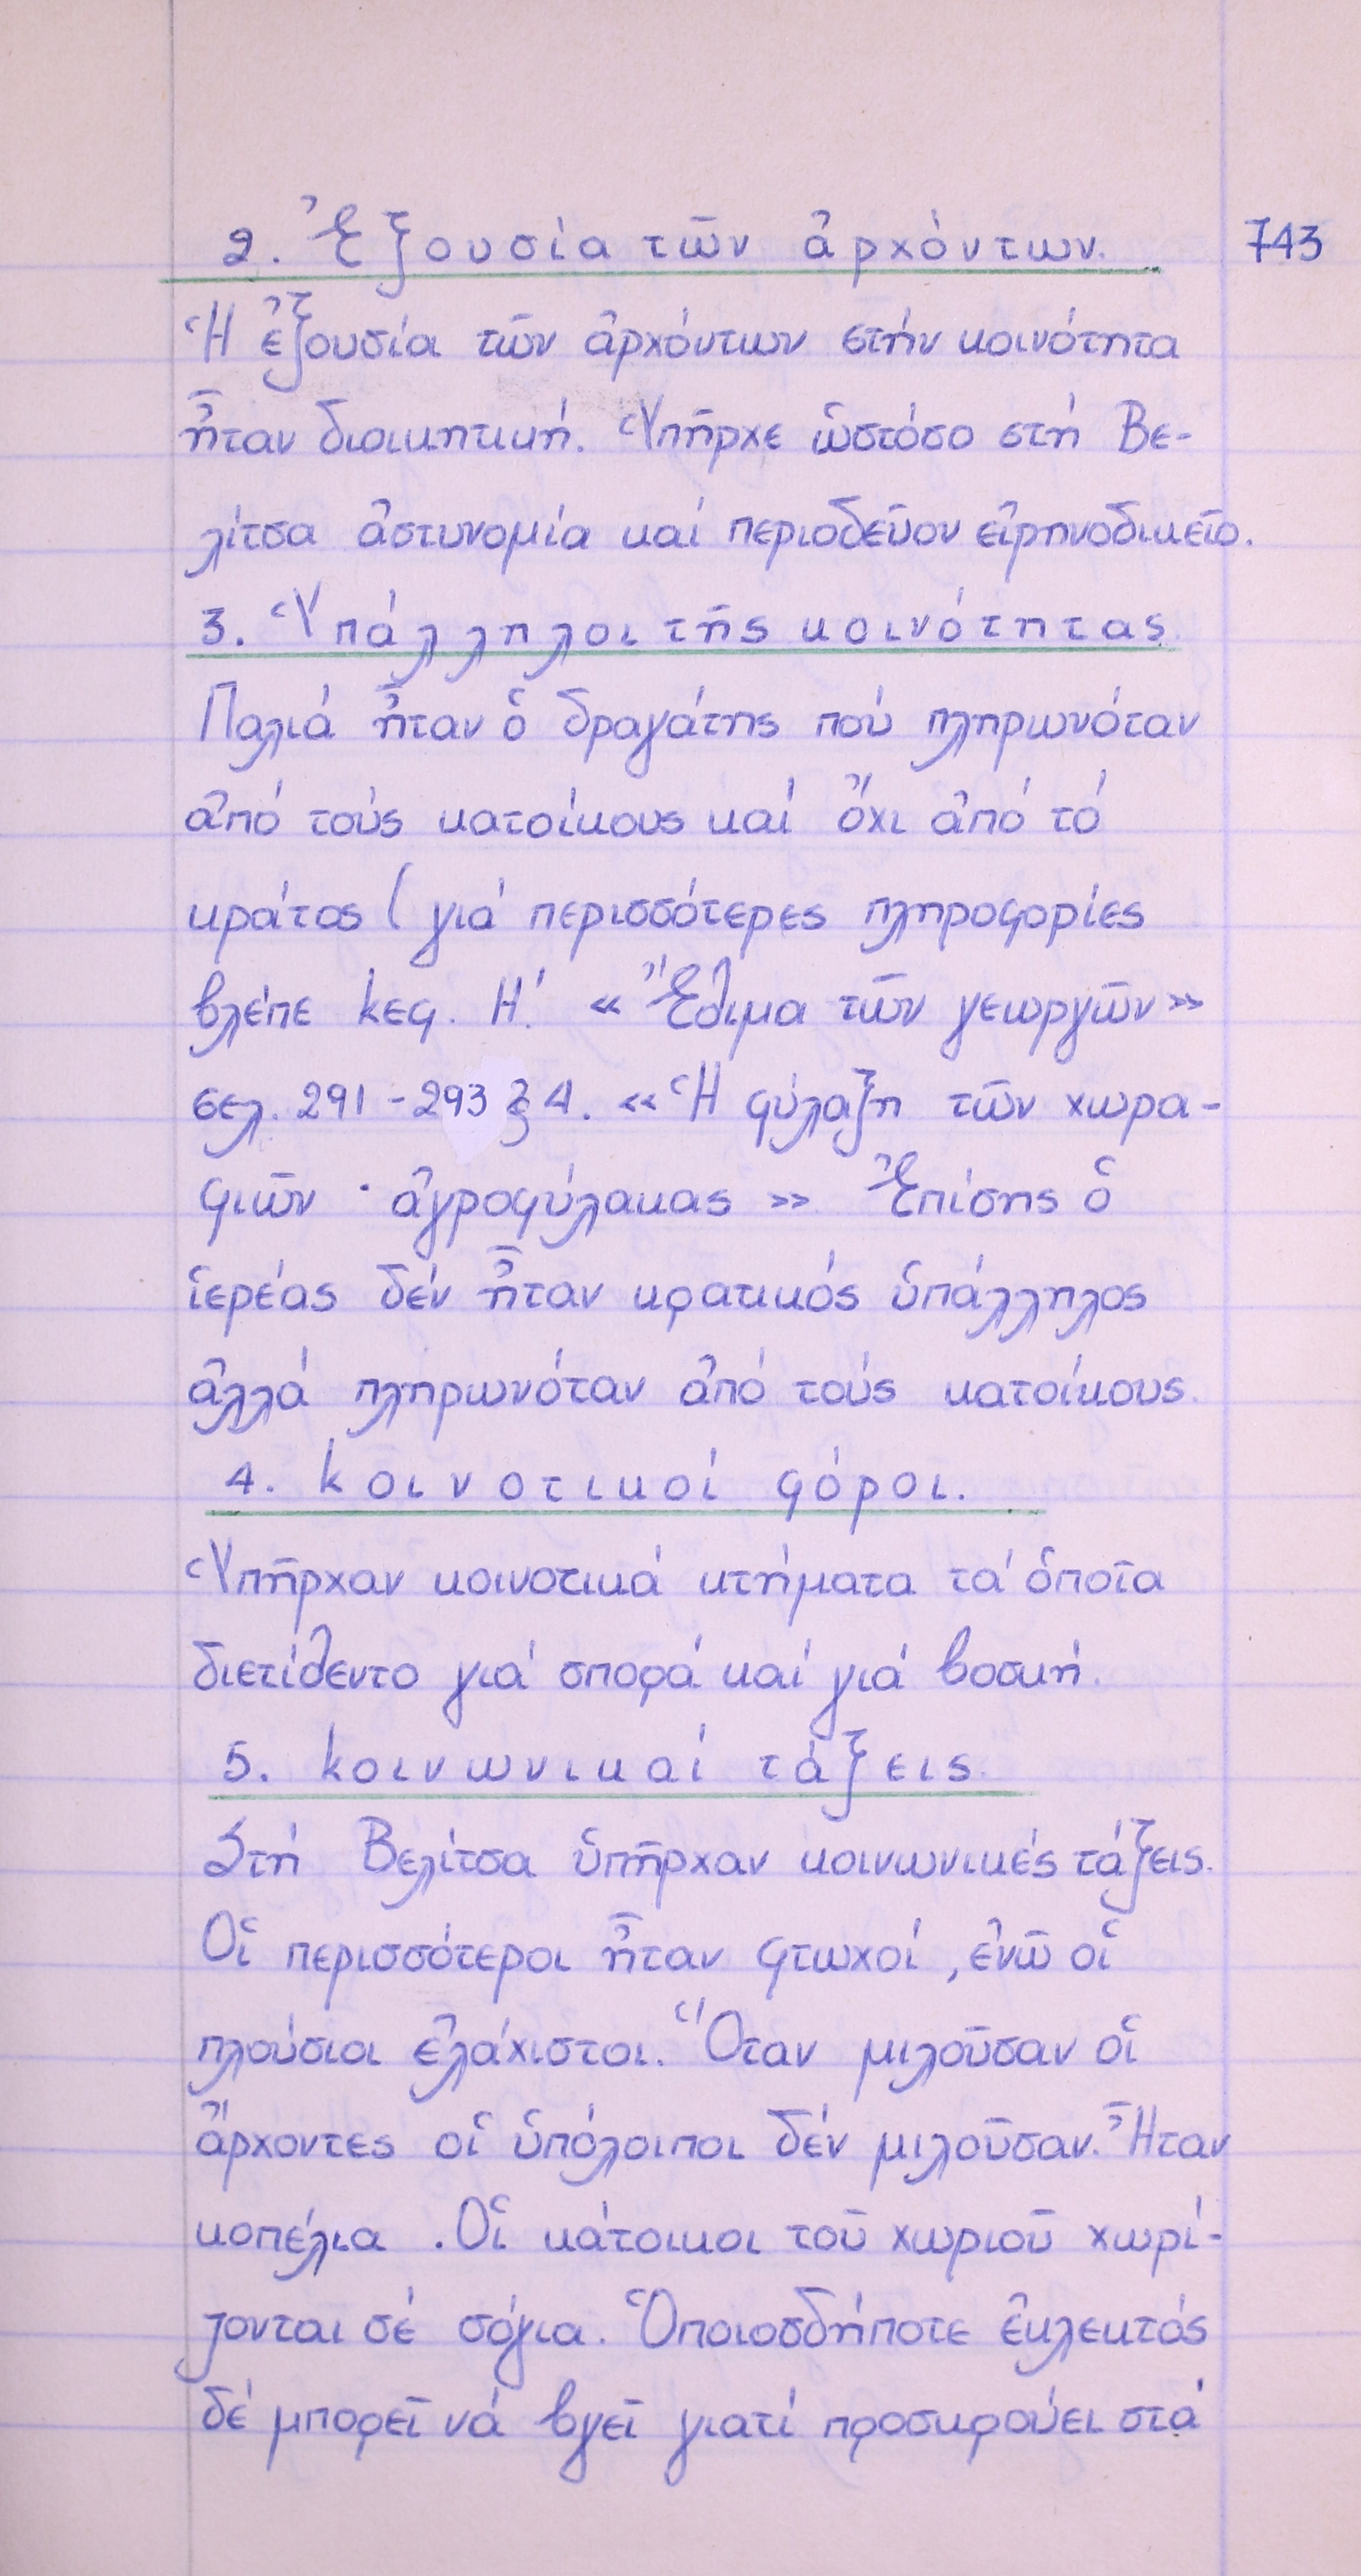 2. Ἐξουσία τῶν ἀρχόντων. 743
Ἡ ἐξουσία τῶν ἀρχόντων στήν κοινότητα
ἦταν διοικητική. Ὑπῆρχε ὡστόσο στή Βε-
λίτσα ἀστυνομία καί περιοδεῦον εἰρηνοδικεῖο.
3. Ὑπάλληλοι τῆς κοινότητας.
Παλιά ἦταν ὁ δραγάτης πού πληρωνόταν
ἀπό τούς κατοίκους καί ὄχι ἀπό τό
κράτος (γιά περισσότερες πληροφορίες
βλέπε κεφ. Η΄. «Ἔθιμα τῶν γεωργῶν»
σελ. 291-293 § 4. «Ἡ φύλαξη τῶν χωρα-
φιῶν · ἀγροφύλακας» Ἐπίσης ὁ
ἱερέας δέν ἦταν κρατικός ὑπάλληλος
ἀλλά πληρωνόταν ἀπό τούς κατοίκους.
4. Κοινοτικοί φόροι.
Ὑπῆρχαν κοινοτικά κτήματα τά ὁποῖα
διετίθεντο γιά σπορά καί γιά βοσκή.
5. Κοινωνικαί τάξεις.
Στή Βελίτσα ὑπῆρχαν κοινωνικές τάξεις.
Οἱ περισσότεροι ἦταν φτωχοί, ἐνῶ οἱ
πλούσιοι ἐλάχιστοι. Ὅταν μιλοῦσαν οἱ
ἄρχοντες οἱ ὑπόλοιποι δέν μιλοῦσαν. Ἦταν
κοπέλια. Οἱ κάτοικοι τοῦ χωριοῦ χωρί-
ζονται σέ σόγια. Ὁποιοσδήποτε ἐκλεκτός
δέ μπορεῖ νά βγεῖ γιατί προσκρούει στά